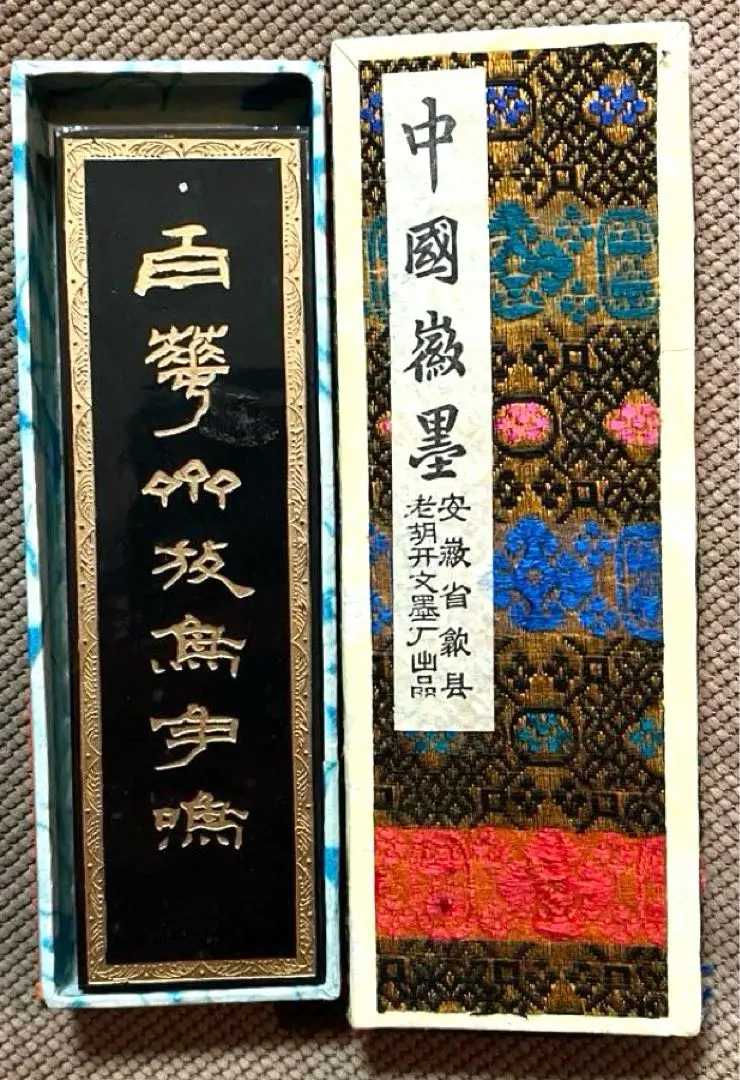 百華齊放鳥争鳴
中國徽墨
安徽省歙县
老胡开文墨厂出品